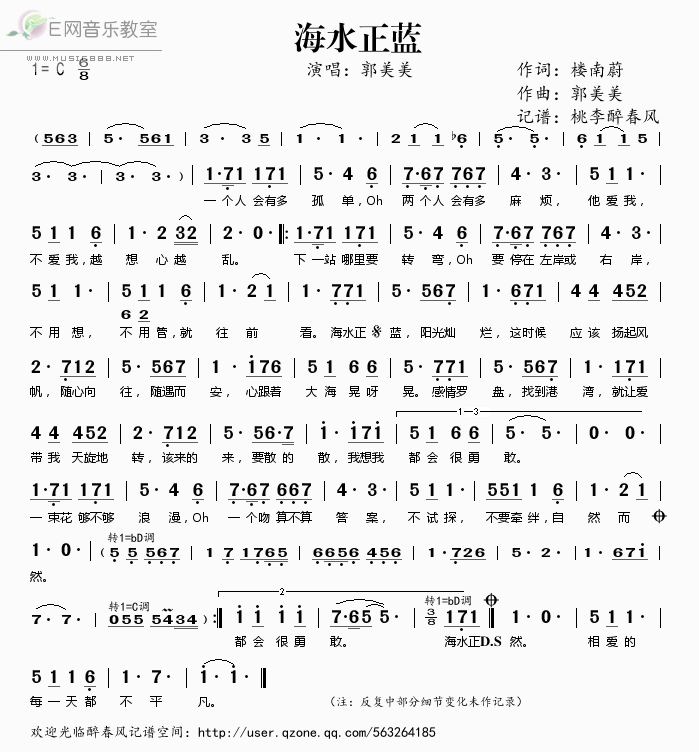 E网音乐教室
www.music888.com
海水正蓝
1=C 6/8
演唱：郭美美
作词：楼南蔚
作曲：郭美美
记谱：桃李醉春风
(563 | 5· 561 | 3· 35 | 1· 1· | 21 1 ♭6 | 5· 5· | 6 1 1 5
3· 3· | 3· 3· ) | 1·71 171 | 5· 4 6 | 7·67 767 | 4· 3· |
一个人 会有多 孤 单,Oh 两个人会有多 麻 烦, 他爱我,
5 1 1 6 | 1· 2 32 | 2· 0· ‖: 1·71 171 | 5· 4 6 | 7·67 767 | 4· 3· |
不爱我,越 想心越 乱。 下一站哪里要 转 弯,Oh 要停在左岸或 右 岸,
51 1· | 5 1 1 6 | 1· 2 1 | 1· 771 | 5· 567 | 1· 671 | 4 4 452 |
6 2
不用想, 不用管,就 往 前 看。海水正 𝄋 蓝, 阳光灿 烂, 这时候 应该 扬起风
2· 712 | 5· 567 | 1· 176 | 5 1 6 6 | 5· 771 | 5· 567 | 1· 171 |
帆, 随心向 往, 随遇而 安, 心跟着 大海晃呀 晃。感情罗 盘, 找到港 湾, 就让爱
1-3
4 4 452 | 2· 712 | 5· 56·7 | 1· 171 | 5 1 6 6 | 5· 5· | 0· 0· |
带我 天旋地 转, 该来的 来, 要散的 散, 我想我 都会很勇 敢。
1·71 171 | 5· 4 6 | 7·67 667 | 4· 3· | 5 1 1· | 551 1 6 | 1· 2 1
一束花 够不够 浪 漫,Oh 一个吻 算不算 答 案, 不试探, 不要牵绊,自 然而
1· 0· | 转1=bD调 (5 5 567 | 1 7 1765 | 6656 456 | 1· 726 | 5· 2· | 1· 671 |
然。
2
7· 7· | 转1=C调 055 5434 ) :‖ 1 1 1 1 | 7·65 5· | 转1=bD调 3/8 171 ‖ 1· 0· | 5 1 1· |
都会很勇 敢。 海水正D.S 然。 相爱的
5 1 1 6 | 1· 7· | 1· 1· ‖
每一天都 不 平 凡。
(注：反复中部分细节变化未作记录)
欢迎光临醉春风记谱空间：http://user.qzone.qq.com/563264185